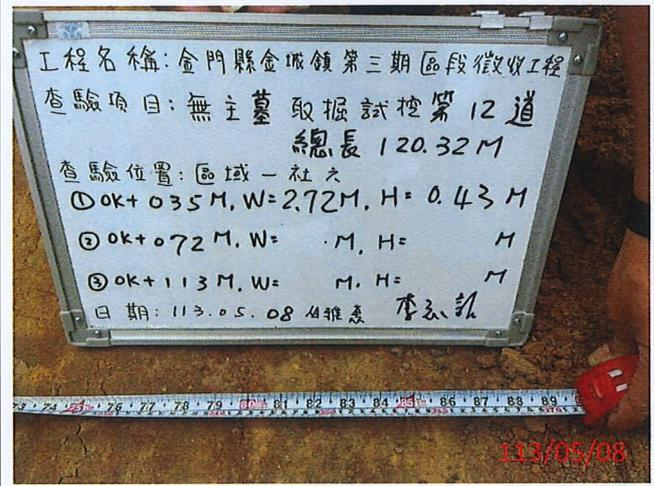 工程名稱:金門縣金城鎮第三期區段徵收工程
查驗項目:無主墓 取掘試挖第12道
總長 120.32M
查驗位置:區域一社六
①0K+035M, W=2.72M, H=0.43M
②0K+072M, W= .M, H= M
③0K+113M, W= M, H= M
日期:113.05.08
73 74 75 76 77 78 79 80 81 82 83 84 85 86 87 88 89
113/05/08